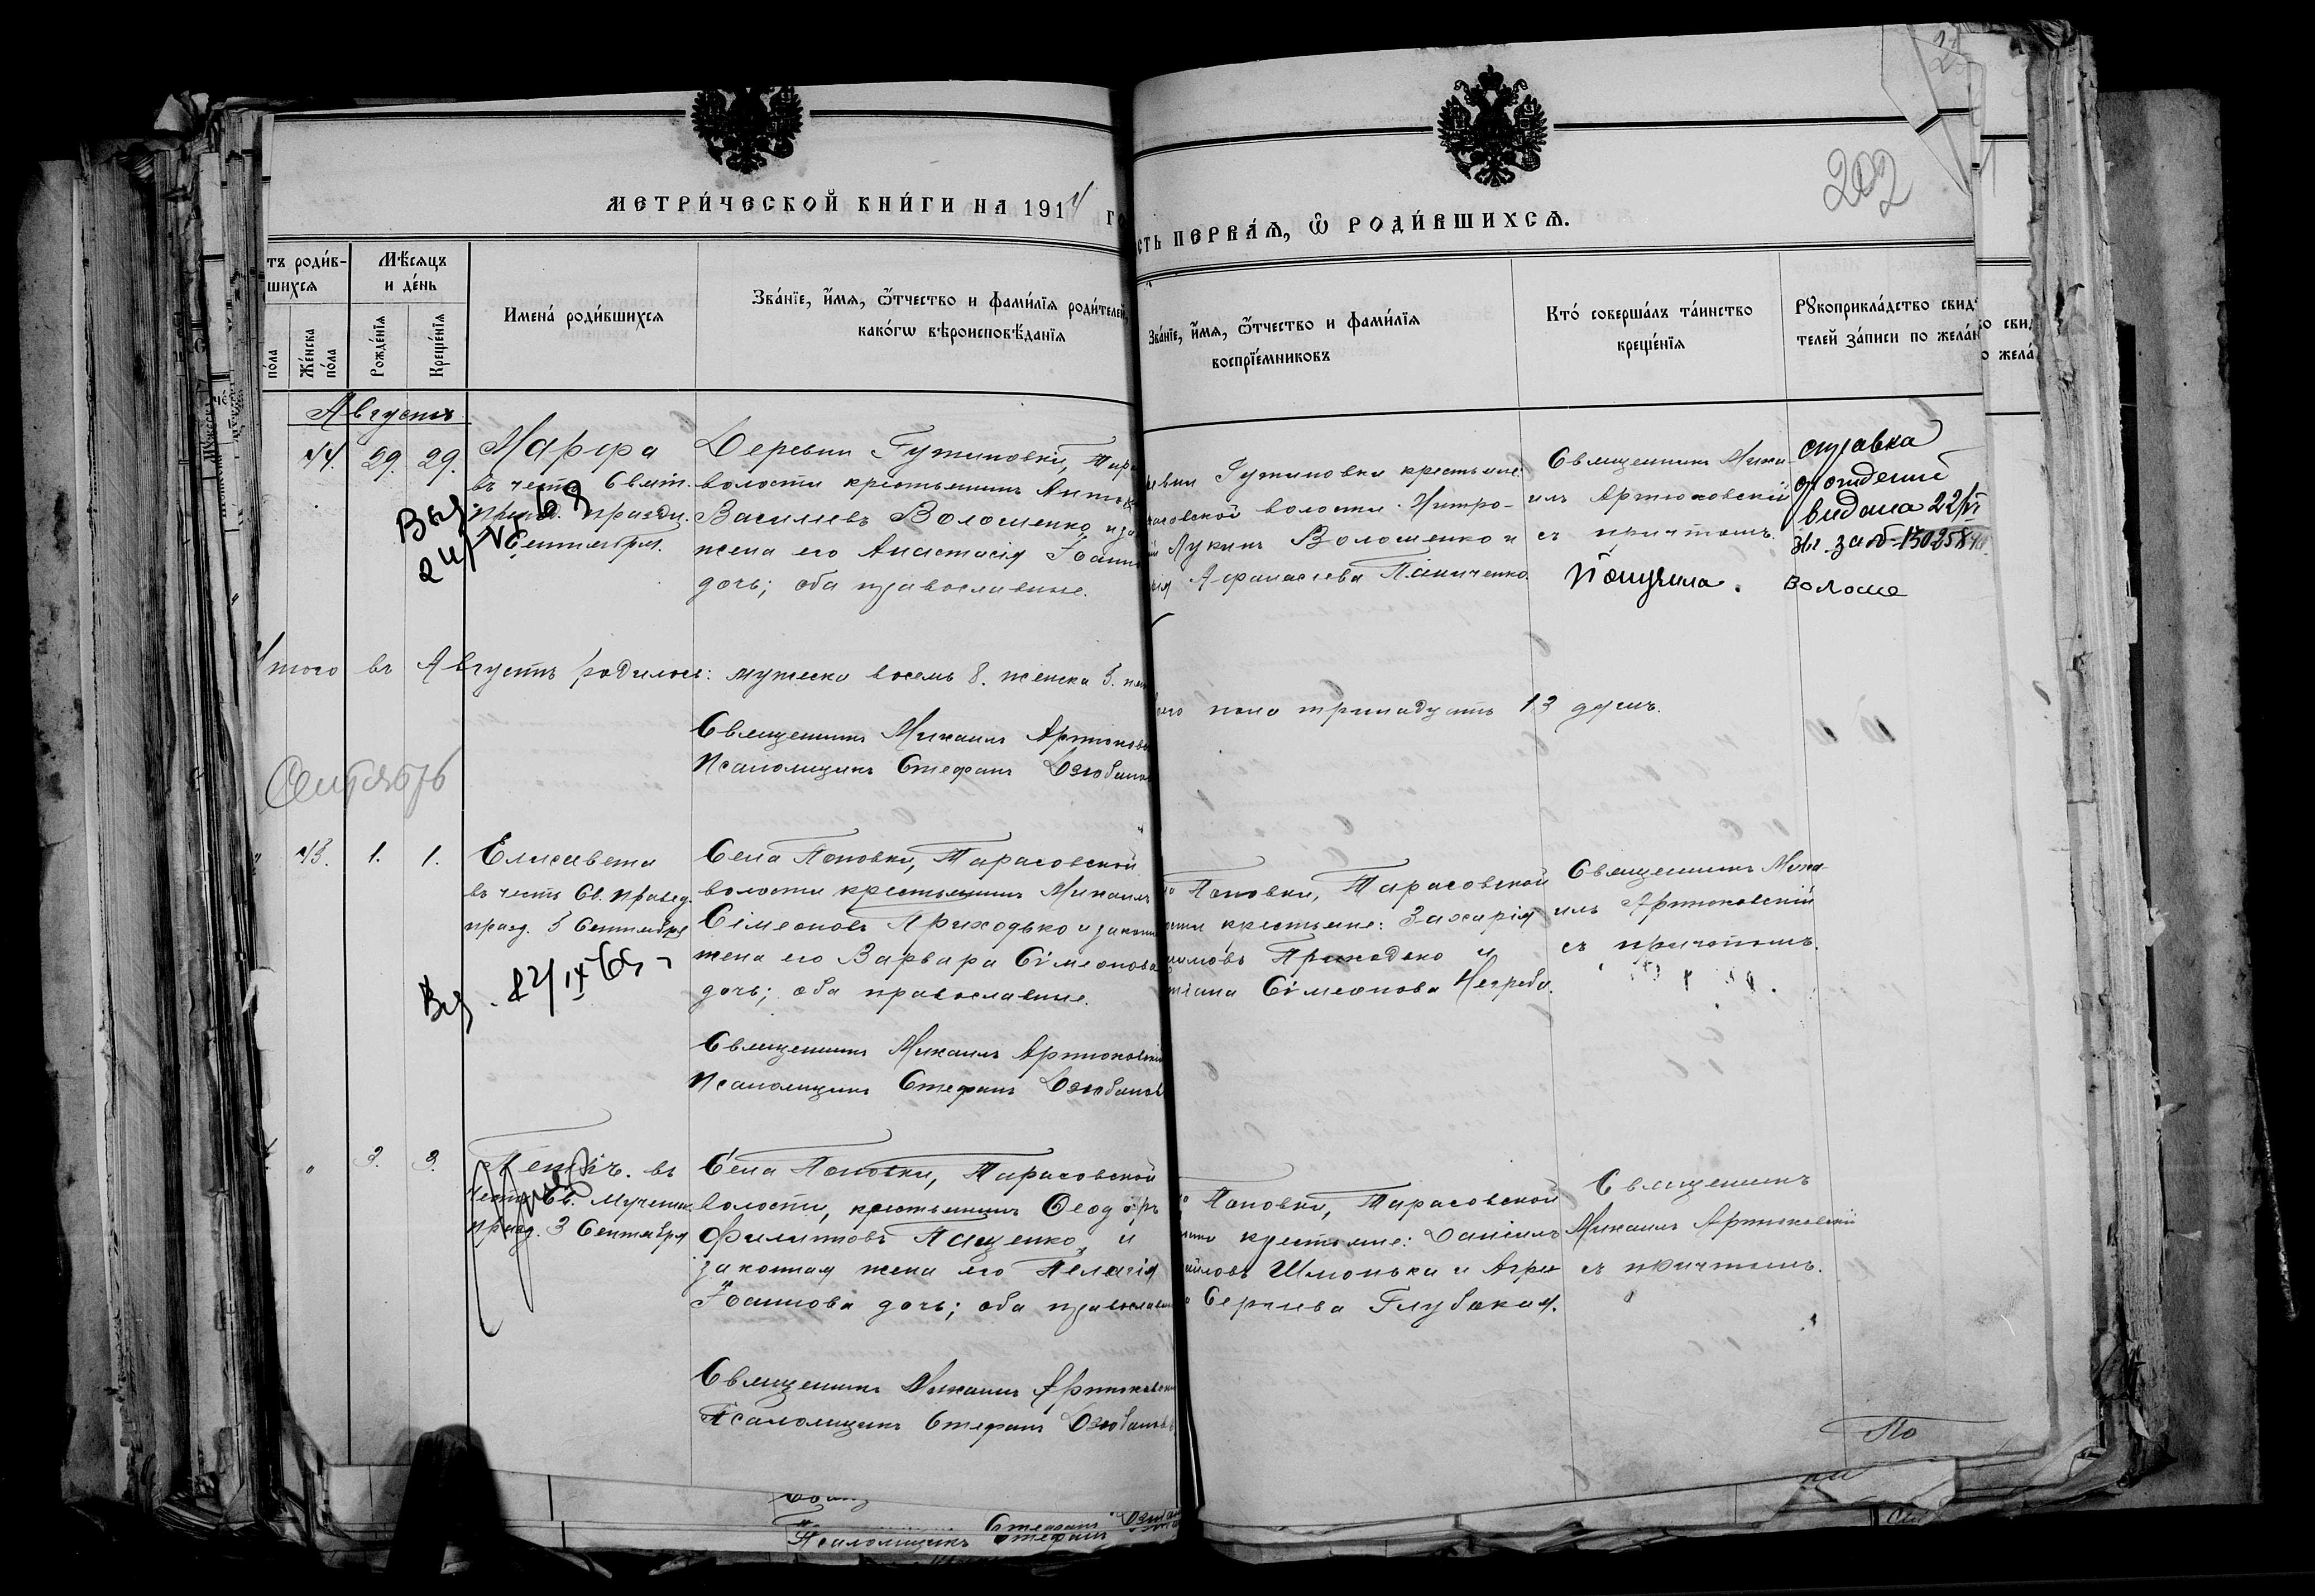 МЕТРИ́ЧЕСКОЙ КНИ́ГИ НА 1914
СТЬ ПЕРВА́Я, Ѡ РОДИ́ВШИХСЯ.
202
тъ роди́в-
шихся
Мѣ́сяцъ
и де́нь
по́ла
Же́нска
по́ла
Рожде́нїя
Креще́нїя
Имена̀ роди́вшихся
Зва́нїе, и́мя, ѻ҆́тчество и фами́лїя роди́телей,
како́гѡ вѣроисповѣ́данїя
Зва́нїе, и́мя, ѻ҆́тчество и фами́лїя
воспрїе́мниковъ
Кто̀ соверша́лъ та́инство
креще́нїя
Рꙋкоприкла́дство свид
телей за́писи по жела́н
Августъ
44. 29. 29.
Марфа
въ честь
празд.
Сентября.
Деревни Гутиновки, Тар
волости крестьянинъ
Василіевъ Волошенко и за
жена его Анастасія Іоанно
дочь; оба православные.
евни Гутиновки крестьяне:
расовской волости. Митро-
Лукинъ Волошенко и
Афанасіева Паниченко.
Священникъ Миха-
илъ Артюховскій
съ причтомъ.
справка
видана 22/VI
Волоше
Итого въ Августѣ родилось: мужеска восемь 8. женска 5.
пола тринадцать 13 душъ.
Священникъ Михаилъ Артюховс
Псаломщикъ Стефанъ Дзюбанов
Сентябрь
45. 1. 1.
Елисавета
въ честь Св. Правед.
празд. 5 Сентября
Села Поповки, Тарасовской
волости крестьянинъ Михаилъ
Сімеоновъ Приходько и законн
жена его Варвара Сімеонова
дочь; оба православные.
Поповки, Тарасовской
ости крестьяне: Захарія
Приходько и
тіана Сімеонова Негреба.
Священникъ Миха-
илъ Артюховскій
съ причтомъ.
Священникъ Михаилъ Артюховскій
Псаломщикъ Стефанъ Дзюбанов
3. 3.
въ
честь Св. Мученик.
празд. 3 Сентября
Села Поповки, Тарасовской
волости, крестьянинъ Ѳеодоръ
Филипповъ Пащенко и
законная жена его Пелагія
Іоаннова дочь; оба православн
Поповки, Тарасовской
крестьяне: Даніилъ
айловъ Шмонька и Агри
Сергіева Глубокая.
Священникъ
Михаилъ Артюховскій
съ причтомъ.
Священникъ Михаилъ Артюховски
Псаломщикъ Стефанъ Дзюбанов
По
Псаломщикъ Стефанъ